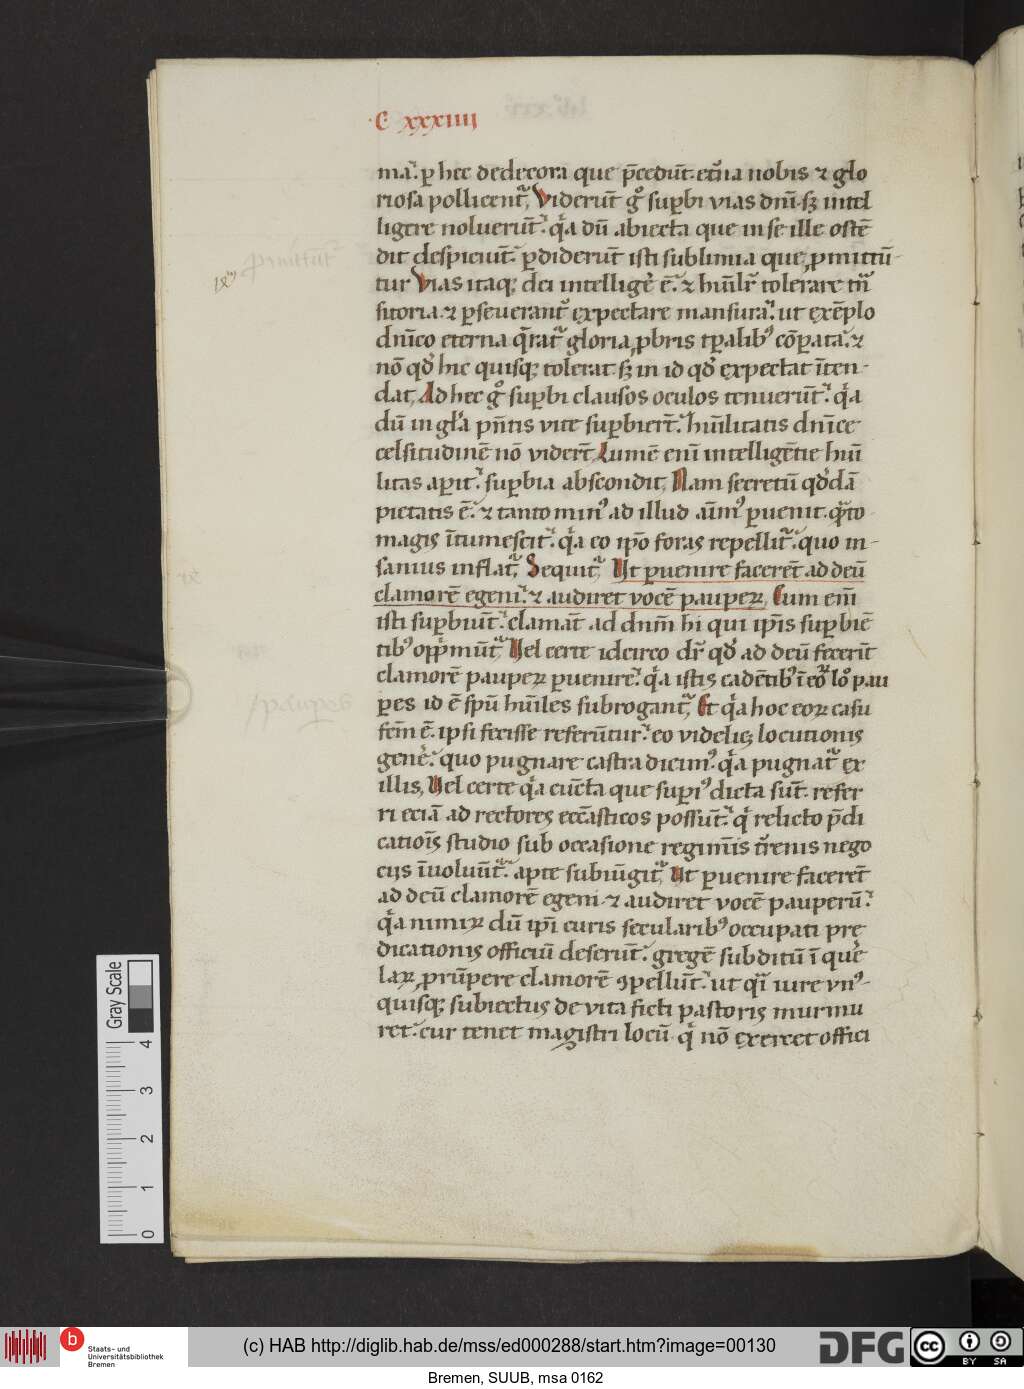 C xxxiiij
ma. ꝑ hec dedecora que p̄cedūt. et̄na nobis ⁊ glo
riosa pollicent᷑. Viderūt gͦ suꝑbi vias dn̄i. sꝫ intel
ligere noluerūt. qͥa dū abiecta que in se ille ostē
dit despiciūt. ꝑdiderūt isti sublimia que ꝓmittū
tur Vias itaqꝫ dei intelligeͬ ē. ⁊ hūil'r tolerare trāsitoria
sitoria. ⁊ ꝑseuerant᷑ expectare mansura. ut exēplo
dn̄ico eterna q̄rat᷑ gloria ꝓbris tꝑalibꝰ cōꝑata. ⁊
nō qd̛ hic quisqꝫ tolerat sꝫ in id qd̛ expectat īten-
dat. Ad hec gͦ suꝑbi clausos oculos tenuerūt. qͥa
dū in gl̄a pn̄tis vite suꝑbierēt. hūilitatis dn̄ice
celsitudinē nō viderēt Lumē eni᷑ intelligētie hūi
litas aꝑit. suꝑbia abscondit. Nam secretū qd̛dā
pietatis ē. ⁊ tanto minꝰ ad illud aīmꝰ ꝑuenit. qͣto
magis ītumescit. qͥa eo ip̄o foras repellit᷑. quo in-
sanius inflat᷑. Sequit᷑. Ut ꝑuenire facerēt ad deū
clamorē egeni. ⁊ audiret vocē pauꝑeꝝ. Cum eni᷑
isti suꝑbiūt. clamāt ad dnm̄ hi qui ip̄is suꝑbiē
tibꝰ opp̄mūt᷑. Uel certe idcirco dr̄ qd̛ ad deū fecerūt
clamorē pauꝑeꝝ ꝑuenire. qͥa istis cadētibꝰ ī eoꝝ loͦ pau
ꝑes id ē sp̄u hūiles subrogant᷑. Et qͥa hoc eoꝝ casu
fcm̄ ē. ipsi fecisse referūtur. eo videlicꝫ locutionis
geneͬ. quo pugnare castra dicimꝰ. qͥa pugnat᷑ ex
illis. Uel certe qͥa cūcta que suꝑiꝰ dicta sūt. refer
ri eciā ad rectores eccl̄asticos possūt. qͥ relicto p̄di
catiōis studio sub occasione regimīs tr̄enis nego
cijs īuoluūt᷑. apte subiūgit᷑. Ut ꝑuenire facerēt
ad deū clamorē egeni ⁊ audiret vocē pauꝑerū.
qͥa nimiꝝ dū ip̄i curis secularibꝰ occupati pre
dicationis officiū deserūt. gregē subditū ī queͬ
laꝝ ꝓrūpere clamorē ꝯpellūt. ut qͣi iure vnꝰ-
quisqꝫ subiectus de vita ficti pastoris murmu
ret. cur tenet magistri locū. qͥ nō exercet offici
Gray Scale
4 3 2 1 0
b Staats- und
Universitätsbibliothek
Bremen
(c) HAB http://diglib.hab.de/mss/ed000288/start.htm?image=00130
DFG
cc BY SA
Bremen, SUUB, msa 0162